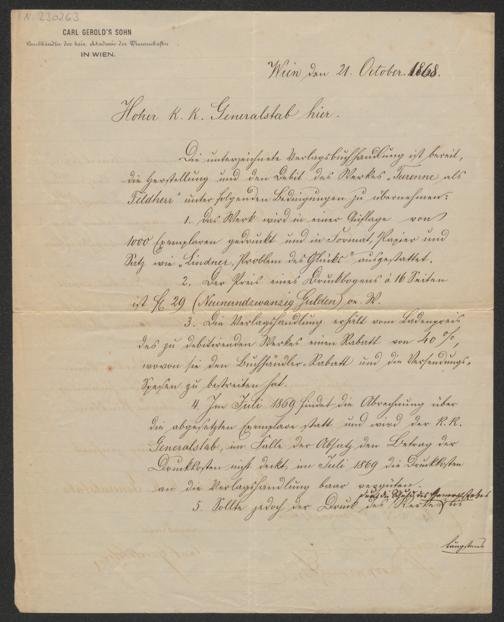 I.N. 230263
CARL GEROLD'S SOHN
Buchhändler der kais. Akademie der Wissenschaften
IN WIEN.
Wien den 21. October 1868.
Hoher k. k. Generalstab hier.
Die unterzeichnete Verlagsbuchhandlung ist bereit,
die Herstellung und den Debit des Werkes „Turenne als
Feldherr" unter folgenden Bedingungen zu übernehmen:
1. Das Werk wird in einer Auflage von
1000 Exemplaren gedruckt und in Format, Papier und
Satz wie „Lindner, Problem des Glücks" ausgestattet.
2. Der Preis eines Druckbogens à 16 Seiten
ist fl. 29 (Neunundzwanzig Gulden) oe. W.
3. Die Verlagshandlung erhält vom Ladenpreis
des zu debitirenden Werkes einen Rabatt von 40 %,
wovon sie den Buchhändler-Rabatt und die Versendungs-
Spesen zu bestreiten hat.
4. Im Juli 1869 findet die Abrechnung über
die abgesetzten Exemplare statt und wird der k. k.
Generalstab, im Falle der Absatz den Betrag der
Druckkosten nicht deckt, im Juli 1869 die Druckkosten
an die Verlagshandlung baar vergüten.
durch die Schuld des Generalstabes
5. Sollte jedoch der Druck des Werkes
längstens